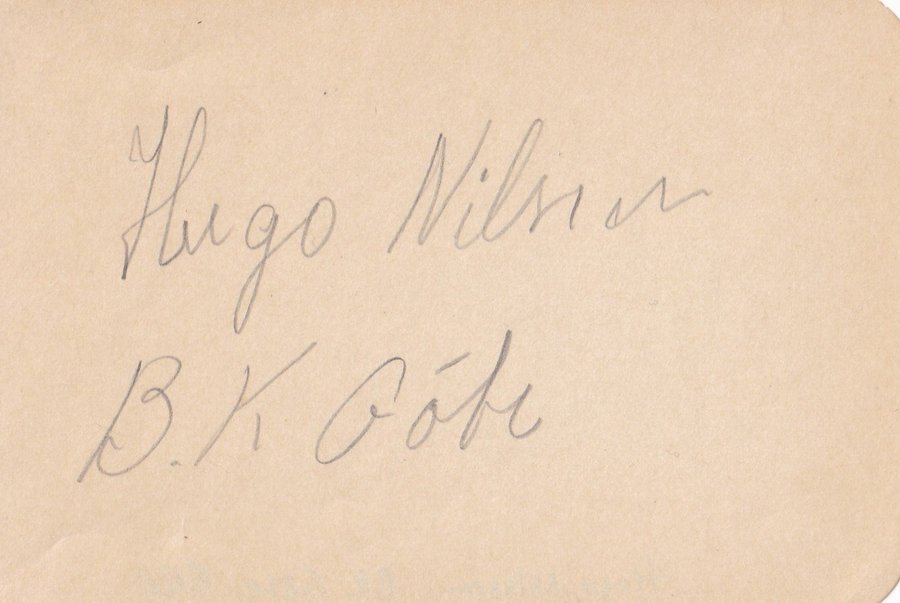 Hugo Nilsson
B.K Göta